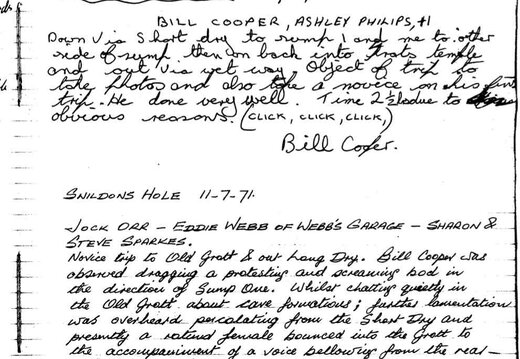 BILL COOPER, ASHLEY PHILIPS, +1
Down Via Short dry to sump 1 and me to other
side of sump then on back into Trats temple
and out via wet way Object of trip to
take photos and also take a novice on his first
trip. He done very well. Time 2½ due to
obvious reasons. (CLICK, CLICK, CLICK,)
Bill Cooper.
SWILDONS HOLE 11-7-71.
JOCK ORR – EDDIE WEBB OF WEBB'S GARAGE – SHARON &
STEVE SPARKES.
Novice trip to Old Grott & out Long Dry. Bill Cooper was
observed dragging a protesting and screaming bod in
the direction of Sump One. Whilst chatting quietly in
the Old Grott about cave formations; further lamentation
was overheard percolating from the Short Dry and
presently a female bounced into the Grott to
the accompaniment of a voice bellowing from the rear –